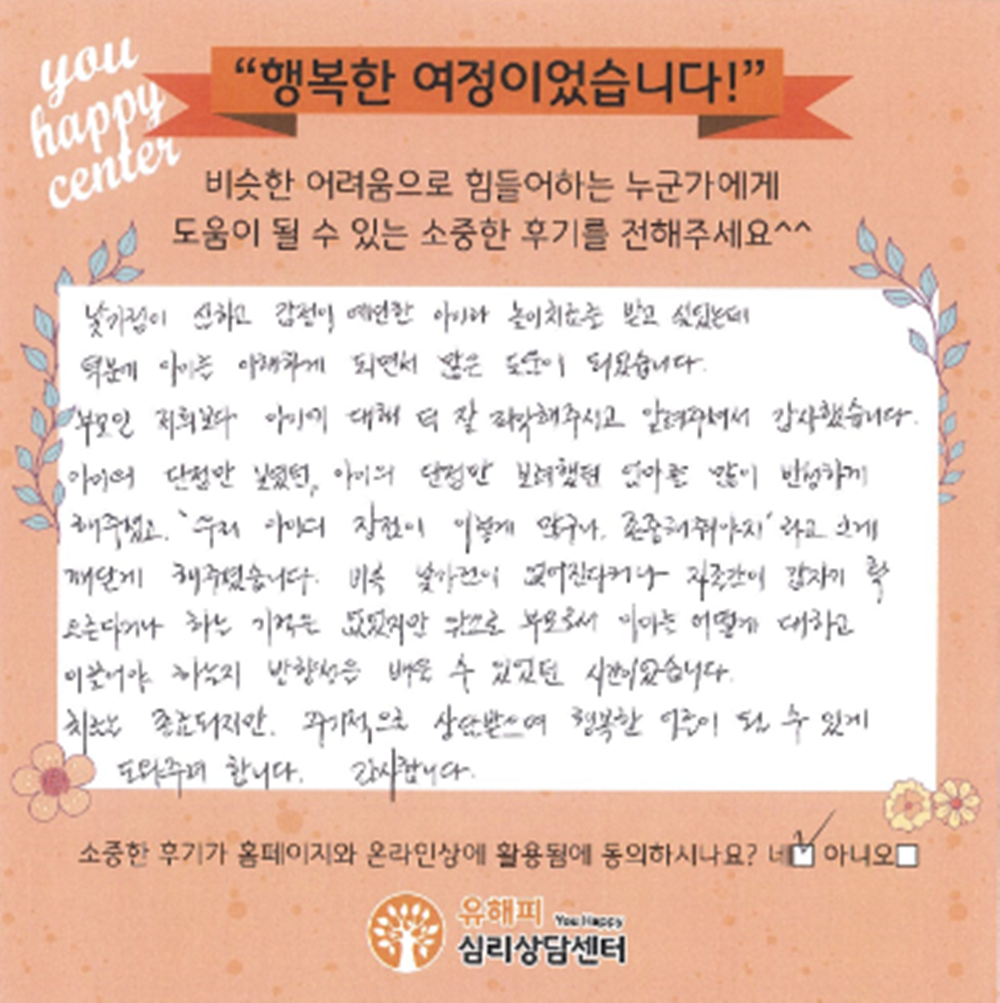 you
happy
center
“행복한 여정이었습니다!”
비슷한 어려움으로 힘들어하는 누군가에게
도움이 될 수 있는 소중한 후기를 전해주세요^^
낯가림이 심하고 감정이 예민한 아이라 놀이치료를 받고 싶었는데
덕분에 아이를 이해하게 되면서 많은 도움이 되었습니다.
부모인 저희보다 아이에 대해 더 잘 파악해주시고 알려주셔서 감사했습니다.
아이의 단점만 보였던, 아이의 단점만 보려했던 엄마를 많이 반성하게
해주셨고, '우리 아이의 장점이 이렇게 많구나, 존중해줘야지' 라고 크게
깨닫게 해주셨습니다. 비록 낯가림이 없어진다거나 자존감이 갑자기 확
오른다거나 하는 기적은 없었지만 앞으로 부모로서 아이를 어떻게 대하고
이끌어야 하는지 방향성을 배울 수 있었던 시간이었습니다.
치료는 종료되지만, 주기적으로 상담받으며 행복한 이 될 수 있게
도와주려 합니다. 감사합니다.
소중한 후기가 홈페이지와 온라인상에 활용됨에 동의하시나요? 네 아니오
유해피 You Happy
심리상담센터